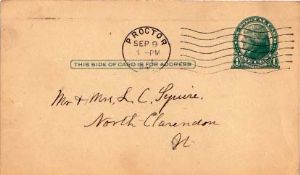 PROCTOR
SEP 9
1-PM
VT.
THIS SIDE OF CARD IS FOR ADDRESS
Mr & Mrs L. C. Squire.
North Clarendon
Vt.